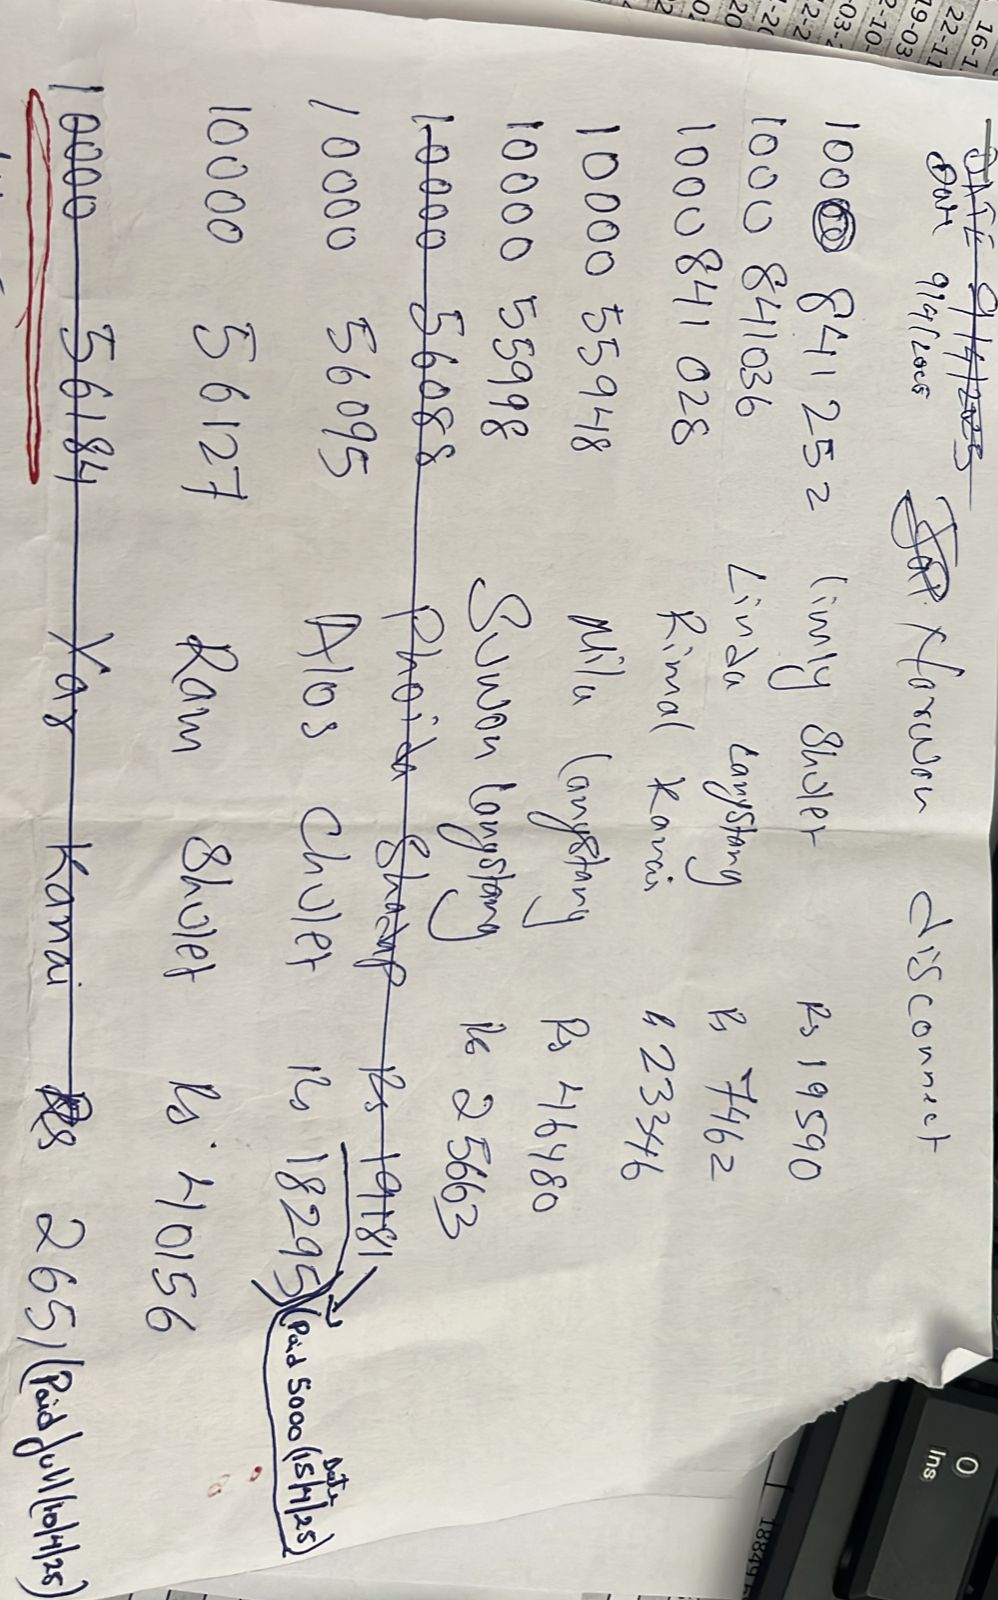 DATE 9/4/2025
Date 9/4/2025 Narwan disconnect
10000 841252 Limly Shulet Rs 19590
1000 841036 Linda Langstang Rs 7462
1000 841028 Rimal Kanai Rs 23346
10000 55948 Nila Langstang Rs 46480
10000 55998 Suwon Langstang Rs 25663
10000 56088 Phoida Rs 19181
10000 56095 Alos Chulet Rs 18295 (Paid 5000 (15/4/25) Date
10000 56127 Ram Shulet Rs. 40156
10000 56184 Yas Kamai Rs 2651 (Paid full (10/4/25)
0
Ins